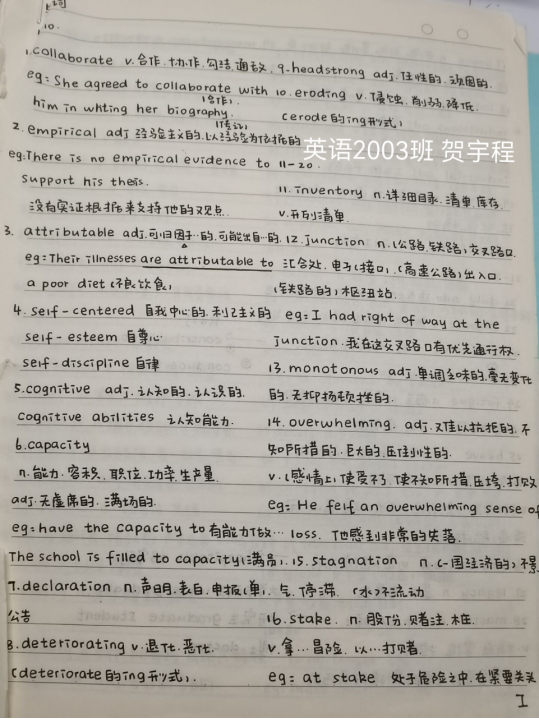 10.
1.collaborate v.合作.协作.勾结.通敌.
eg: She agreed to collaborate with
him in whting her biography.
(合作).
(传记)
2. empirical adj 经验主义的.以经验为依据的
eg:There is no empirical evidence to
support his theis.
没有实证根据来支持他的观点.
3. attributable adj.可归因于…的.可能出自…的.
eg:Their illnesses are attributable to
a poor diet (不良饮食)
4. self-centered 自我中心的.利己主义的
self-esteem 自尊心
self-discipline 自律
5.cognitive adj.认知的.认识的.
cognitive abilities 认知能力.
6.capacity
n.能力.容积.职位.功率.生产量
adj.无虚席的.满场的.
eg:have the capacity to 有能力做…
The school is filled to capacity(满员).
7.declaration n.声明.表白.申报(单).
公告
8.deteriorating v.退化.恶化.
(deteriorate的ing形式).
9.headstrong adj.任性的.顽固的.
10.eroding v.侵蚀.削弱.降低.
(erode的ing形式)
11-20.
11. inventory n.详细目录.清单.库存.
v.开列清单.
12.junction n.(公路.铁路)交叉路口.
汇合处.电子(接口).(高速公路)出入口.
(铁路的)枢纽站.
eg:I had right of way at the
junction.我在这交叉路口有优先通行权.
13.monotonous adj.单调乏味的.毫无变化
的.无抑扬顿挫的.
14.overwhelming. adj.难以抗拒的.不
知所措的.巨大的.压倒性的.
v.(感情上)使受不了.使不知所措.压垮.打败
eg:He felf an overwhelming sense of
loss.他感到非常的失落.
15.stagnation n.(一国经济的)不景
气.停滞.(水)不流动
16.stake. n.股份.赌注.桩.
v.拿…冒险.以…打赌.
eg:at stake 处于危险之中.在紧要关头
I
英语2003班 贺宇程